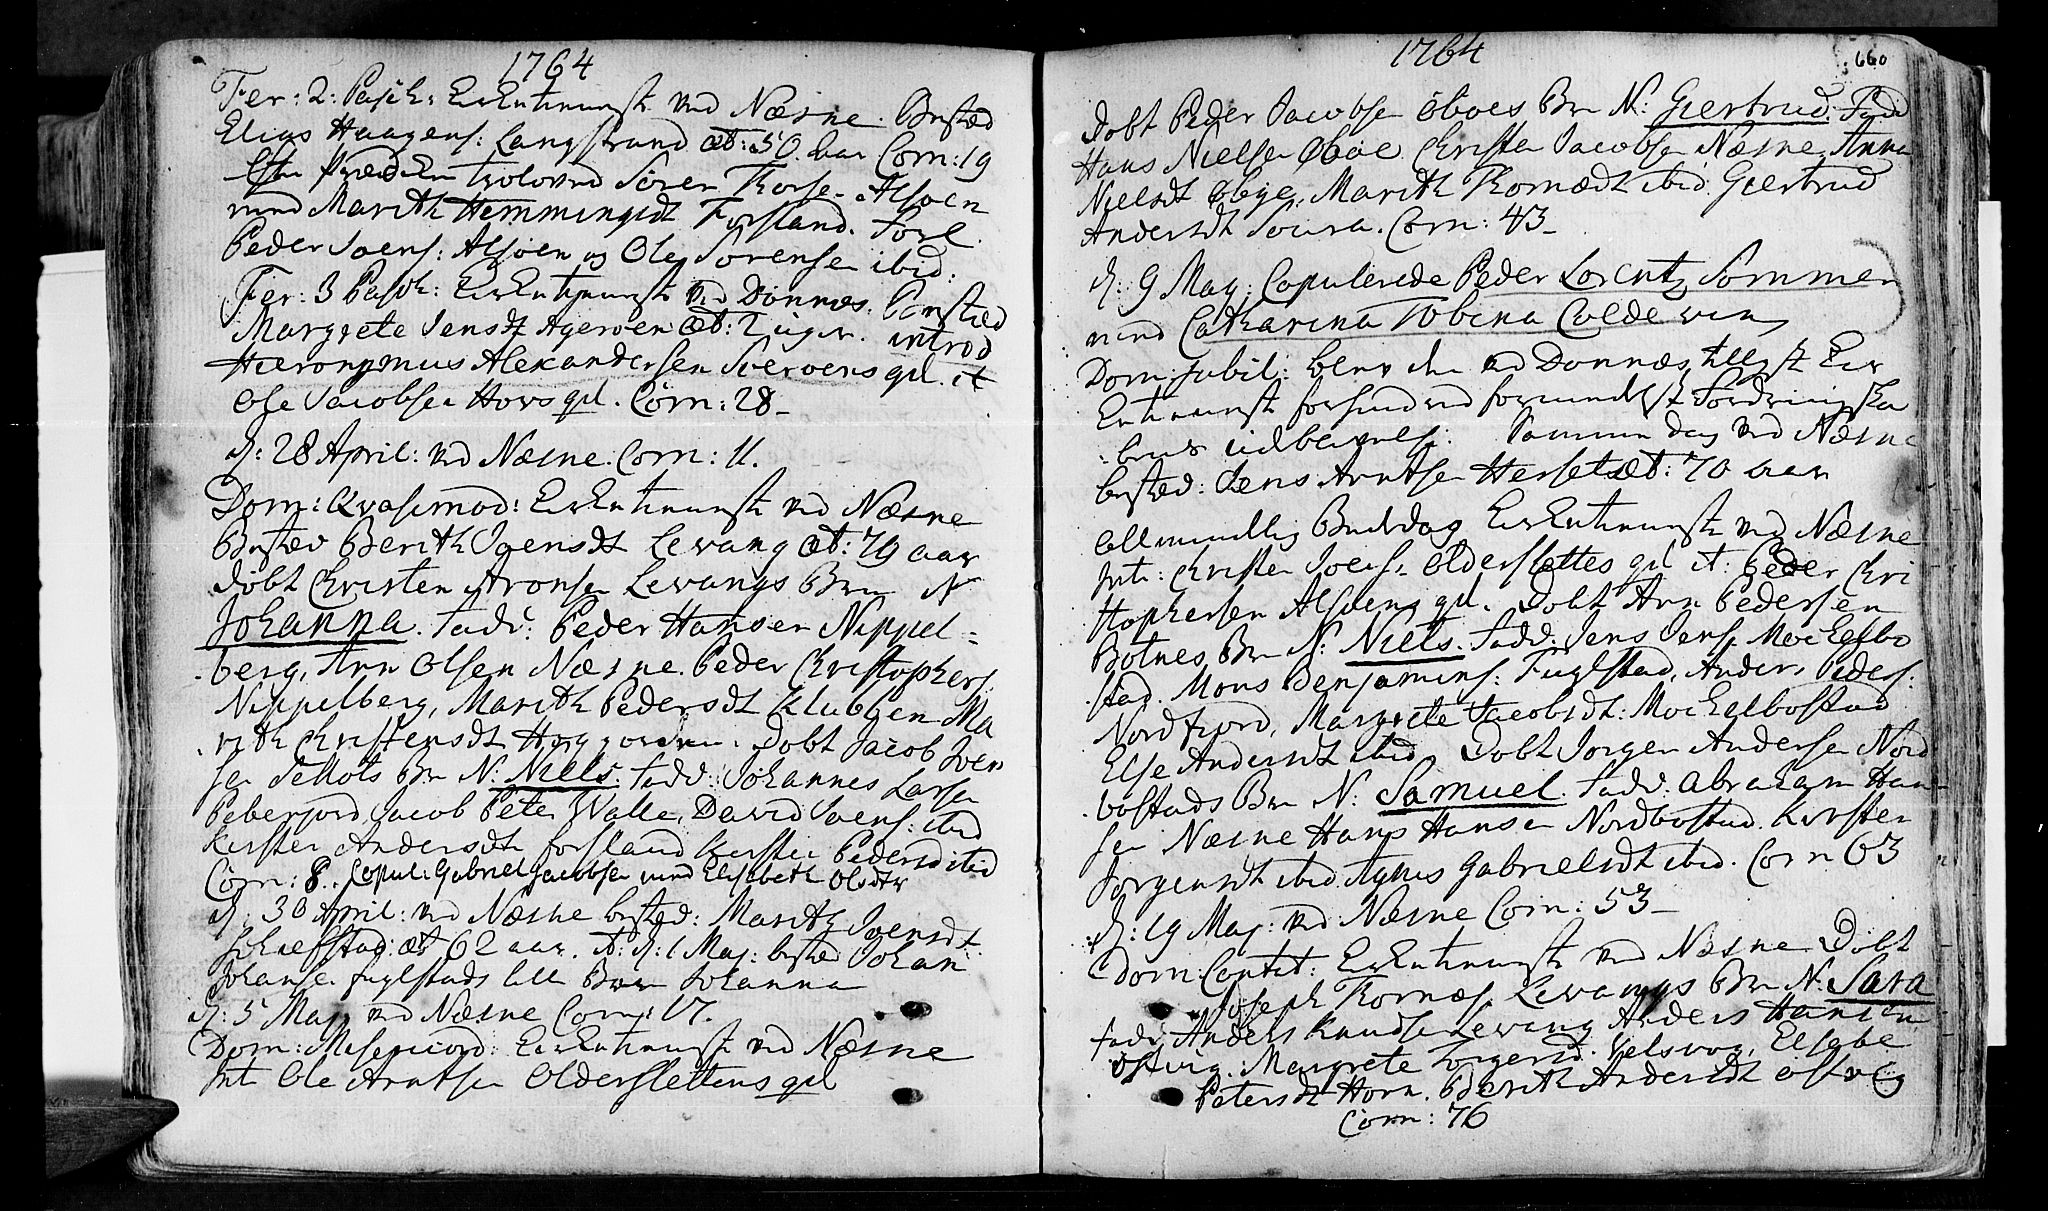 1764
Fer: 2: Pasch: Eenkennunst ved Næsne. Bested
Elias Haagens: Langstrand æt: 50. aar Com: 19
Efter Præd: Trolovd Sören Thorse. Alsöen
med Marith Hemmingsdt Forsland. Forl
Peder Joens: Alsöen og Ole Sörensen ibid:
Fer: 3 Pasch: ved Dönnes. Bested
Margrete Jensdt Ageröen æt: 2 uger. introd
Hieronymus Alexandersen Sverøens qd. it
Ole Jacobsen Hovs qd. Com: 28
d: 28 April: ved Næsne. Com: 11.
Dom: Qvasimod: ved Næsne
Bested Berith Joensdt Levang æt: 79 aar
döbt Christen Aronsen Levangs Bn N
Johanna. Fadd: Peder Hansen Nippel=
berg, Arn Olsen Næsne. Peder Christophers
Nippelberg, Marith Pedersdt Klubben Ma
rith Christensdt. Döbt Jacob Joen
sen Sellots Bn N: Niels. Fadd: Johannes Larsen
Peberjord, Jacob Peter Walle, David Joens: ibid
Kirsten Andersdt forsland Kirsten Pedersd ibid
Com: 8. Copul: Gabriel Jacobsen med Elisabeth Olsdtr
d: 30 April: ved Næsne bested: Marith Joensdt
æt 62 aar. it: d: 1 Maj: bested Johan
Johanse fuglstads lille Barn Johanna
d: 5 Maj ved Næsne Com: 17.
Dom: Misericord: ved Næsne
Int Ole Arntsen Olderslettens qd
1764
660
Döbt Peder Jacobsen Öboes Bn N: Giertrud: Fadd
Hans Nielsen Öboe Christen Jacobsen Næsne, Anne
Nielsdt Öboe, Marith Thomædt ibid Giertrud
Andersdt Soura. Com: 43
d: 9 Maj: Copulerede Peder Lorentz Sommer
med Catharina Tobina Coldevin
Dom: Jubil: blev der ved Dönnes
Samme dag ved Næsne
bested: Jens Arntsen Herset æt: 70 aar
Allmindelig Beededag ved Næsne
Int: Christen Joens. Olderslettes qd it: Peder Chri
stophersen Alsöens qd. Döbt Arn Pedersen
Botnes Bn N: Niels. Fadd. Jens Jens. Moe Egelbo
stad. Mons Benjamins: Fuglstad, Anders Peders:
Nordfjord, Margrete Jacobsdt: Moe Egelbostad
Else Andersdt ibid. Döbt Jörgen Andersen Nord
bostads Bn N: Samuel. Fadd. Abraham Han
sen Næsne Hans Hansen Nordbostad. Kirsten
Jörgensdt ibid Agnis Gabrielsdt ibid. Com 63
d: 19 Maj: ved Næsne Com: 53
Dom: Cantat: ved Næsne Döbt
Joseph Thomæs. Levangs Bn N: Sara
Fadd: Anders Knudsen Levang Anders Hansen
Ostvig. Margrete Torgersd. Velsvog, Elsebe
Petersdt Horn. Berith Andersdt Ostvig
Com: 76